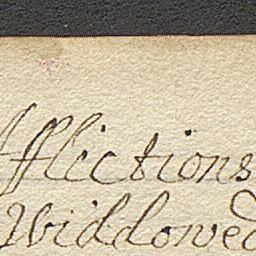 Afflictions
Widdowed